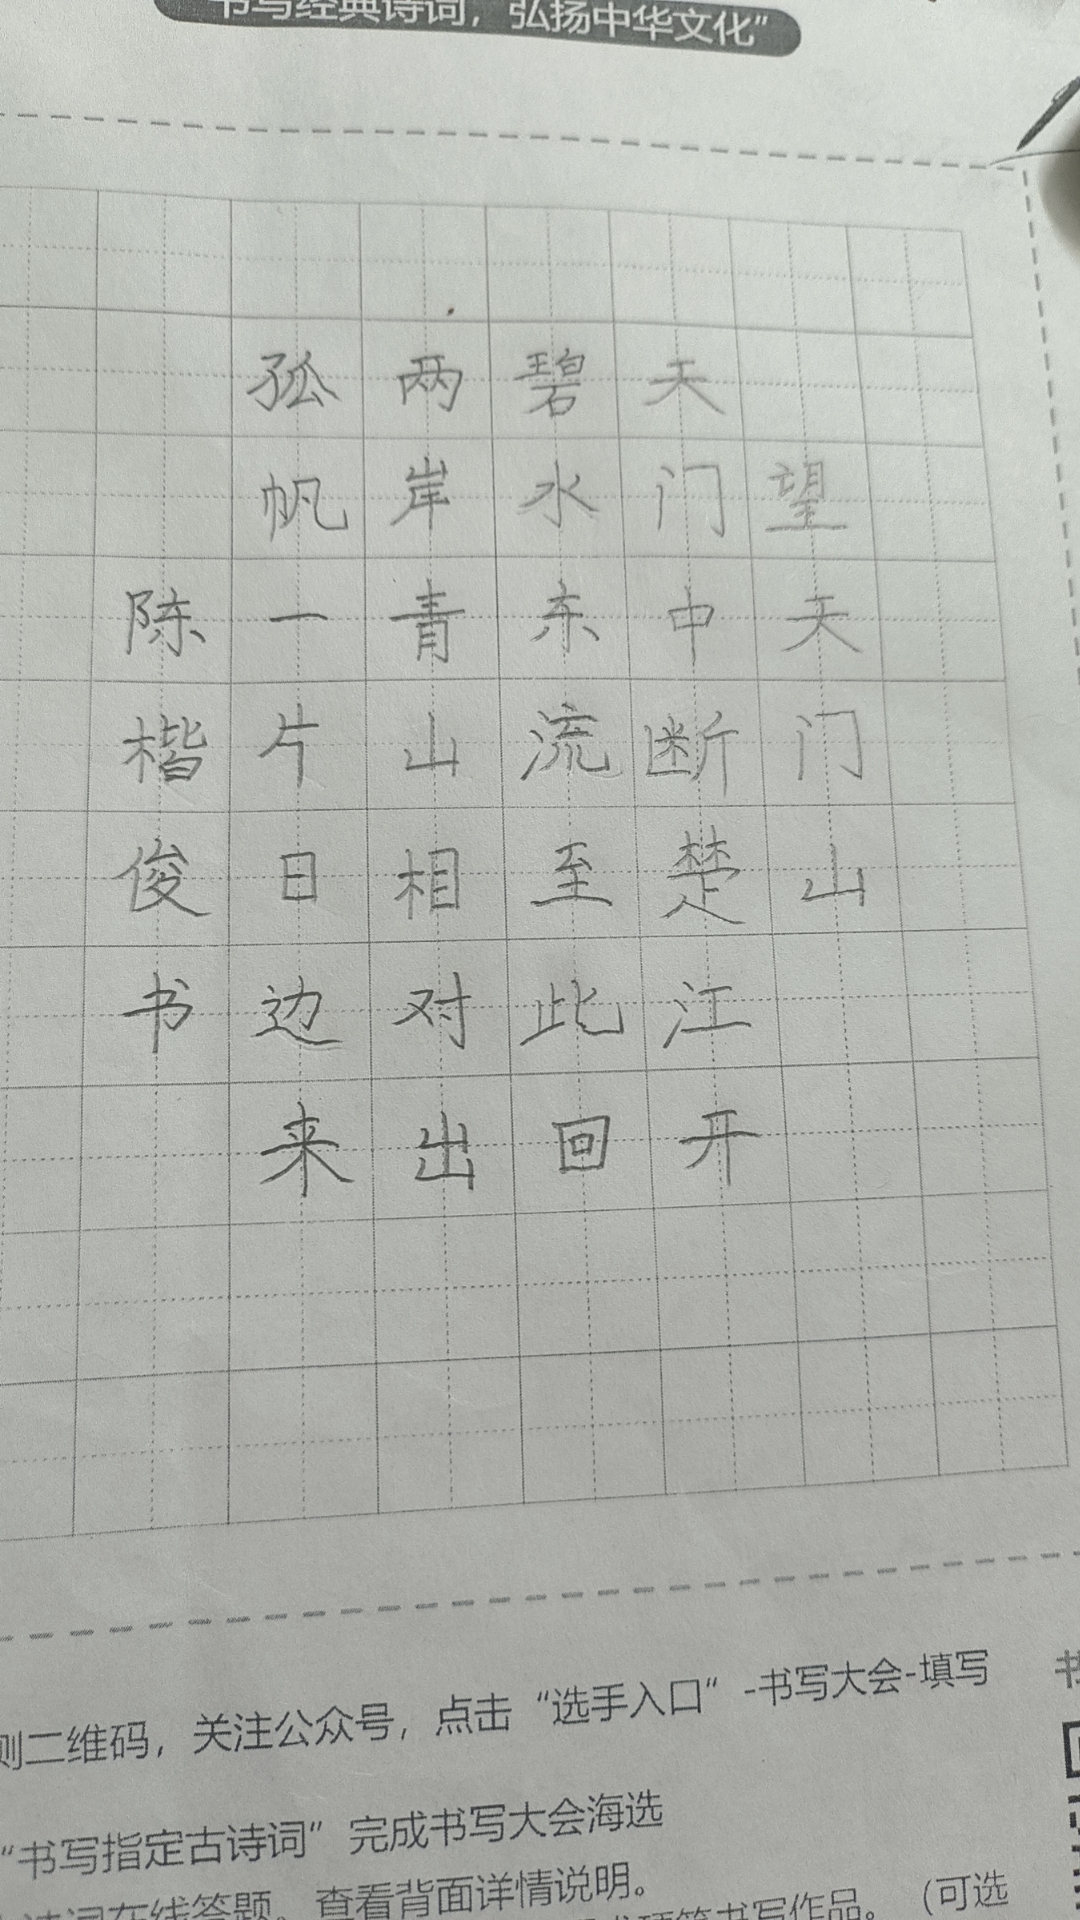 书写经典诗词，弘扬中华文化”
望天门山
天门中断楚江开
碧水东流至此回
两岸青山相对出
孤帆一片日边来
陈楷俊书
则二维码，关注公众号，点击“选手入口”-书写大会-填写
“书写指定古诗词”完成书写大会海选
诗词在线答题。查看背面详情说明。
硬笔书写作品。（可选